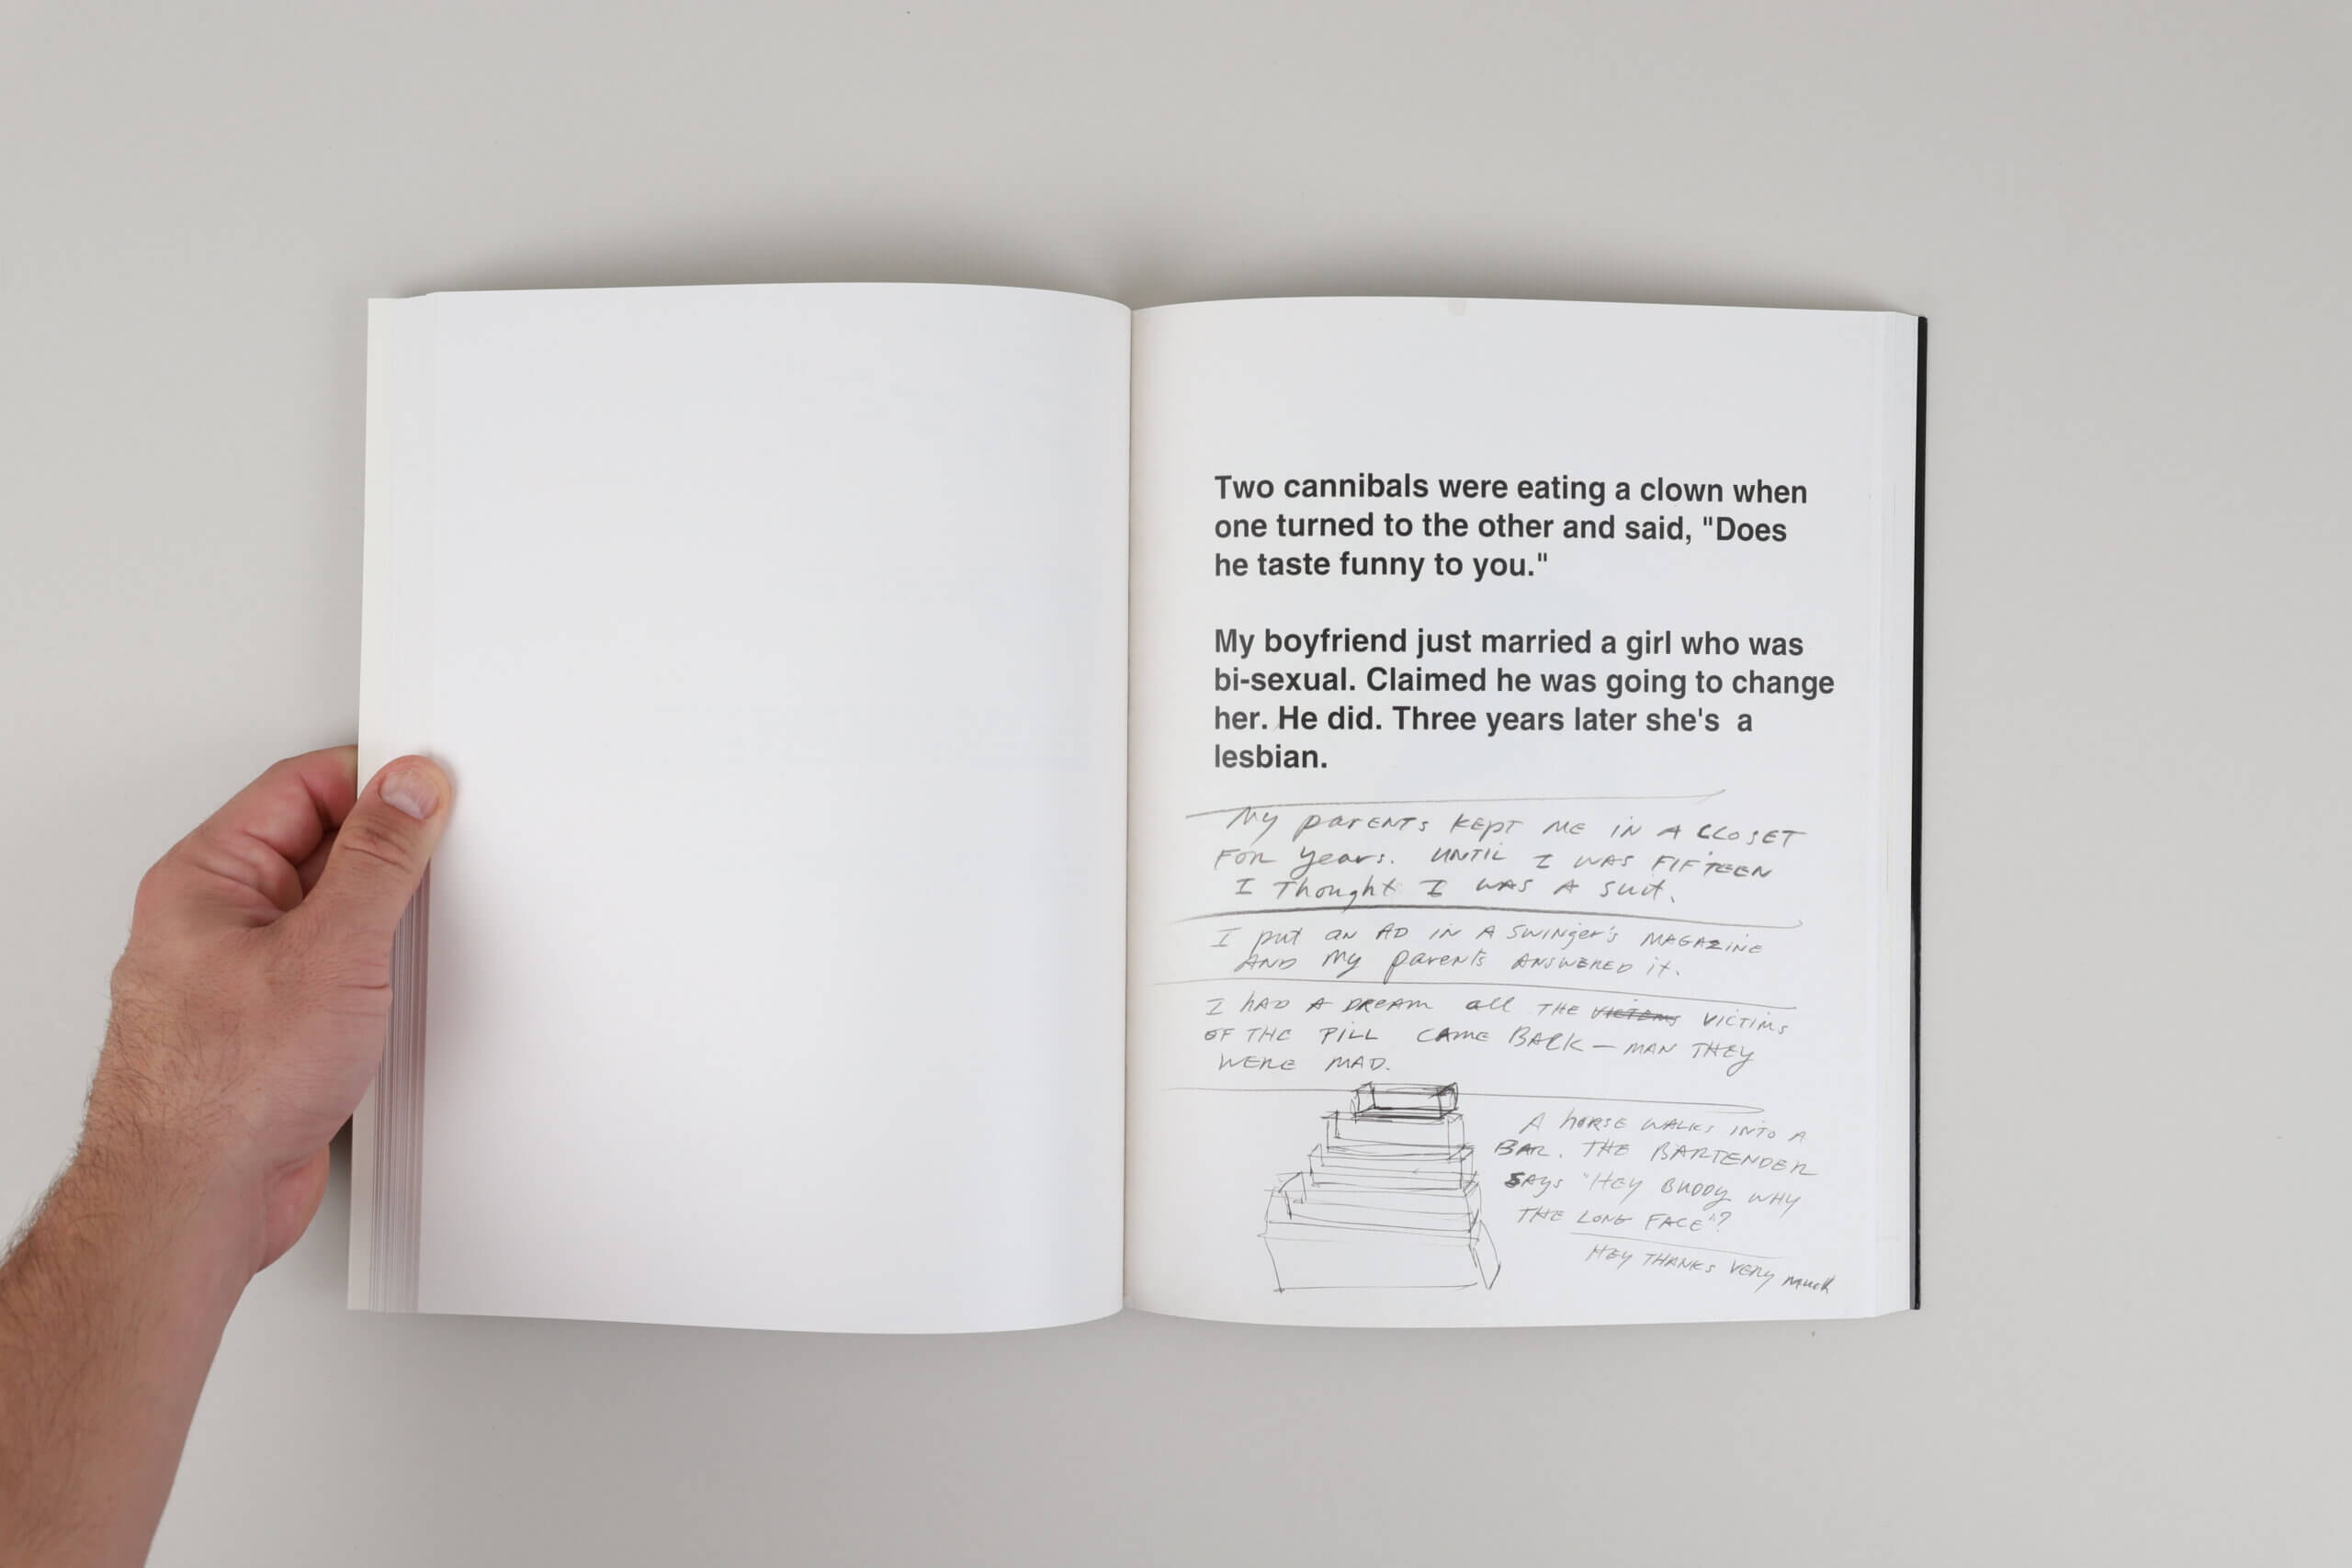 Two cannibals were eating a clown when
one turned to the other and said, "Does
he taste funny to you."
My boyfriend just married a girl who was
bi-sexual. Claimed he was going to change
her. He did. Three years later she's  a
lesbian.
My parENTs KEpT ME IN A CLOSET
FOR years. UNTIL I WAS FIFTEEN
I Thought I WAS A suit.
I put an AD IN A SWINger's MAGAZINE
AND My parents ANSWERED it.
I HAD A DREAM all THE VICTIMS VICTIMS
OF THE PILL CAME BACK — MAN THEY
WERE MAD.
A HORSE WALKS INTO A
BAR. THE BARTENDER
SAYS "HEY BUDDY WHY
THE LONG FACE"?
HEY THANKS VERY much